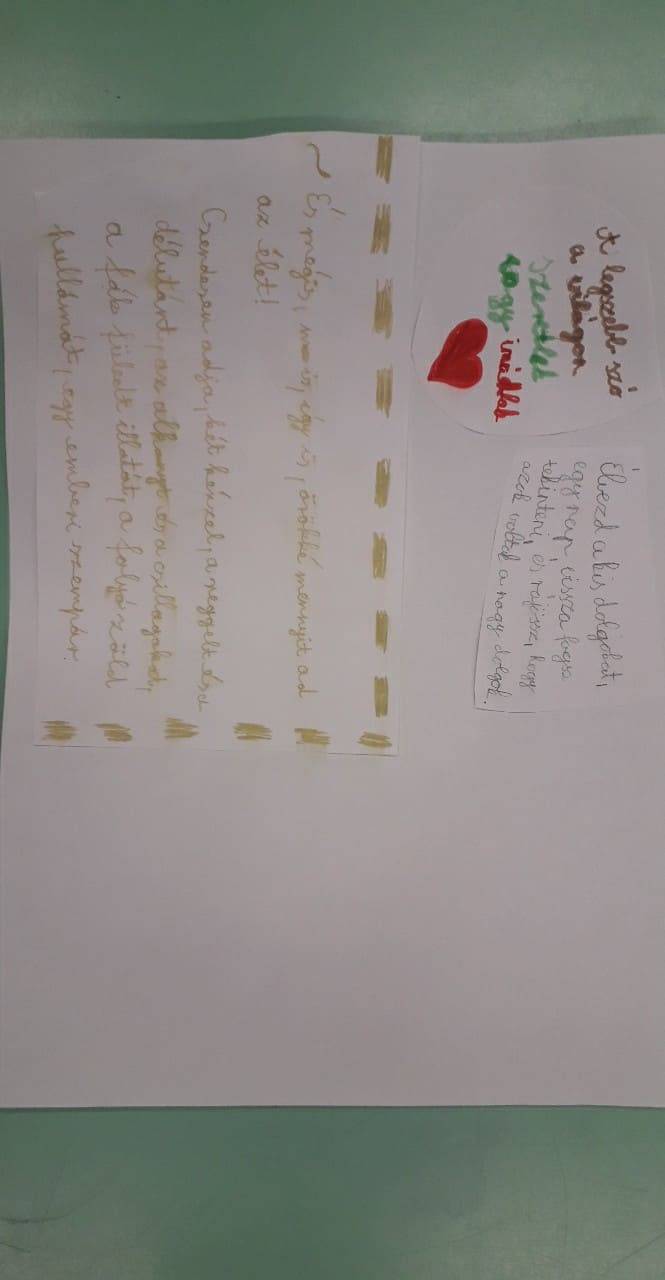 A legszebb szó
a világon
szeretlek
vagy imádlak
Élvezd a kis dolgokat,
egy nap, vissza fogsz
tekinteni, és rájössz, hogy
azok voltak a nagy dolgok.
~ És mégis, most is, így is, örökké mennyit ad
az élet!
Csendesen adja, két kézzel, a reggelt és a
délutánt, az alkonyt és a csillagokat,
a fák fülledt illatát, a folyó zöld
hullámát, egy emberi szempár